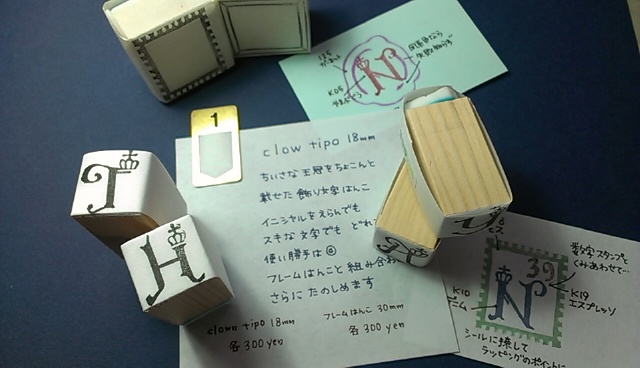 同系色なら
失敗知らず
N
K05
1
clow tipo 18mm
ちいさな王冠をちょこんと
載せた 飾り文字はんこ
イニシャルをえらんでも
スキな文字でも どれ
使い勝手は◎
フレームはんこと 組み合わ
さらに たのしめます
clown tipo 18mm
各300yen
フレームはんこ 30mm
各 300 yen
T
H
数字スタンプと
くみあわせて…
39
N
K10
K19
エスプレッソ
シールに捺して
ラッピングのポイントに